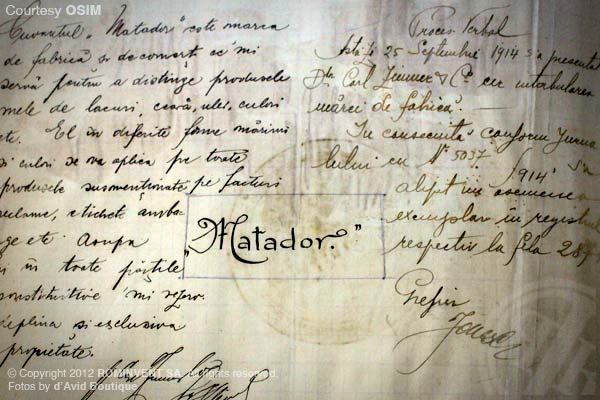 Courtesy OSIM
Cuvantul „Matador" este marca
de fabrică și de comerț ce'mi
servă pentru a distinge produsele
mele de lacuri, ceară, ulei, culori
etc. El în diferite forme mărimi
și culori se va aplica pe toate
produsele susmentionate pe facturi
reclame, etichete amba-
ge etc Asupra
și în toate părțile
constitutive 'mi rezerv
deplina si esclusiva
proprietate.
„Matador."
Proces Verbal
Astăzi 25 Septembrie 1914 s'a presentat
Dl. Carl Zimmer & Co. cer intabularea
mărcei de fabrică.
In consecință conform Jurna
lului cu No 5037 1914 s'a
alipit un asemenea
exemplar în registrul
respectiv la fila 287
Grefier
© Copyright 2012 ROMINVENT SA. All rights reserved.
Fotos by d'Avid Boutique